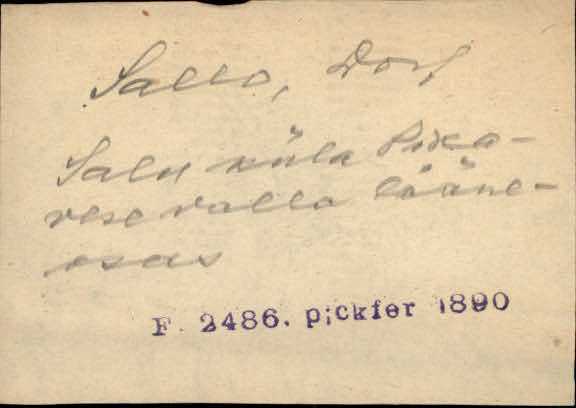 Sallo, Dorf
Salu küla Pika-
vese valla lääne-
osas
F. 2486. pickfer 1890